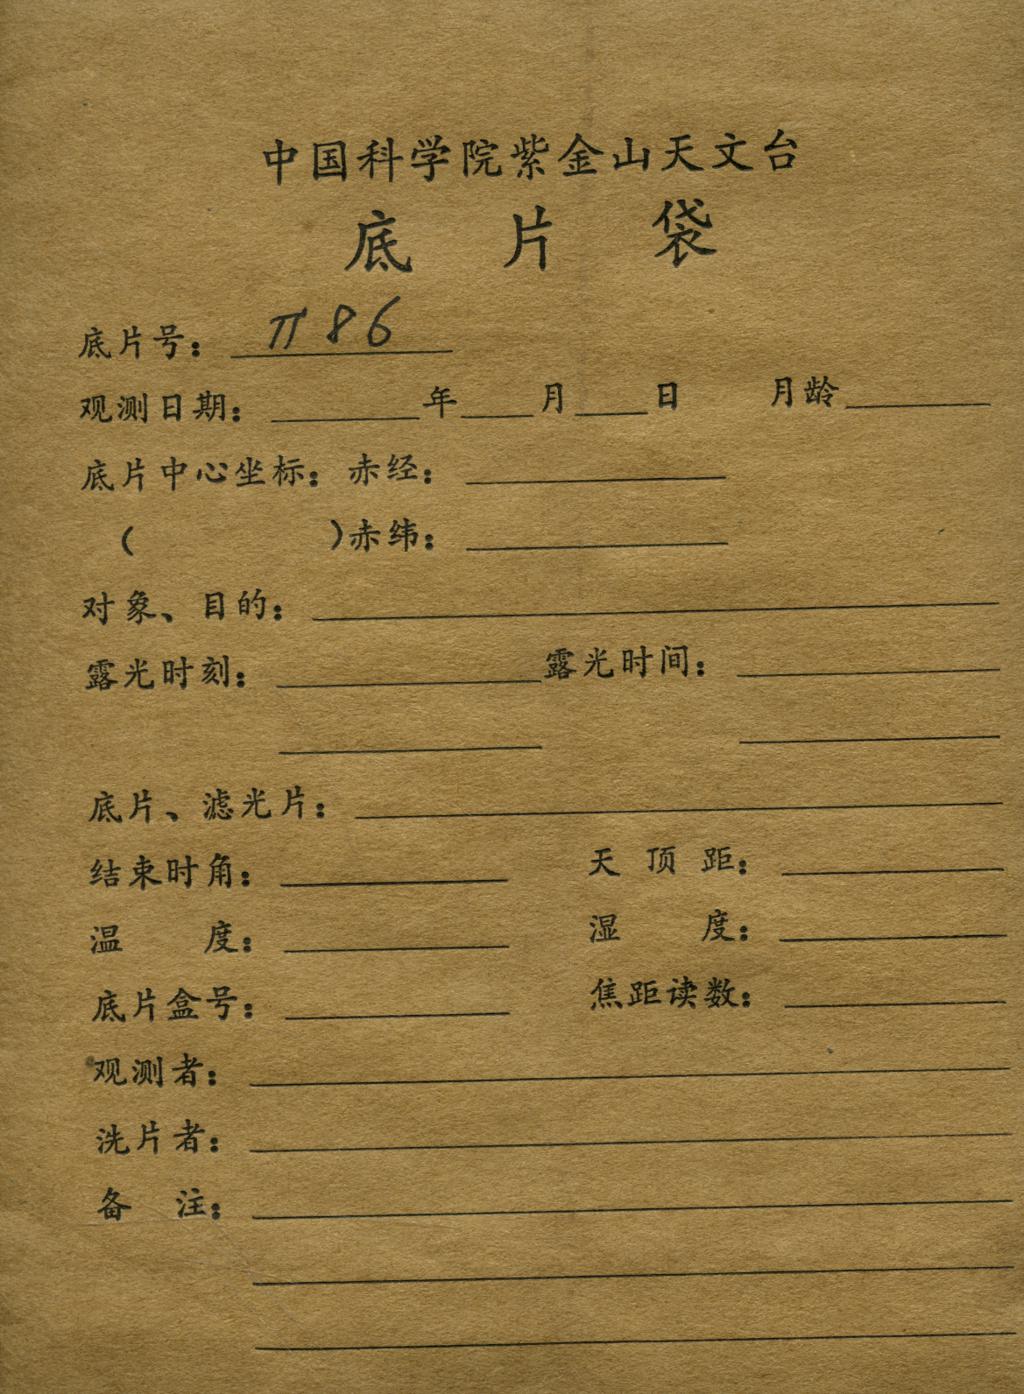 中国科学院紫金山天文台
底片袋
底片号： π86
观测日期： 年 月 日 月龄
底片中心坐标：赤经：
（ ）赤纬：
对象、目的：
露光时刻： 露光时间：
底片、滤光片：
结束时角： 天顶距：
温度： 湿度：
底片盒号： 焦距读数：
观测者：
洗片者：
备注：